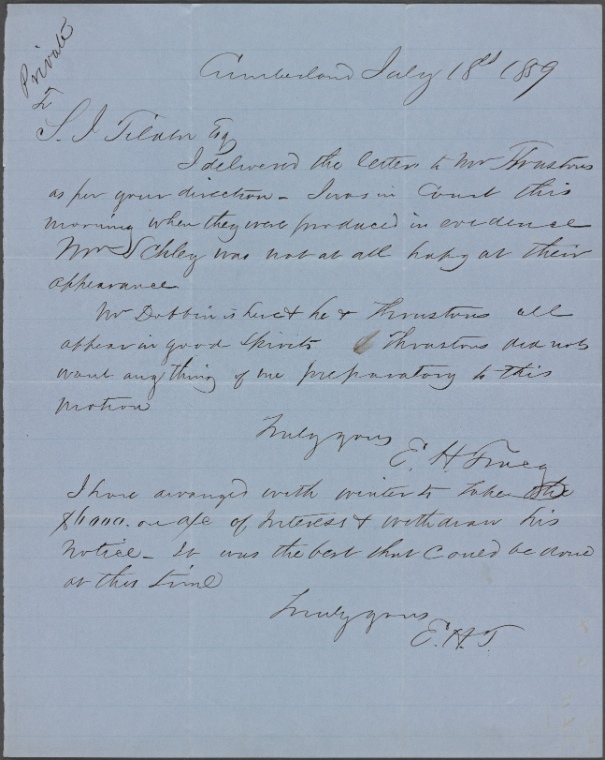 Private
Cumberland July 18th 1859
S. J. Tilden Esq
I delivered the letters to Mr Thrustons
as per your direction - I was in Court this
morning when they were produced in evidence
Mr Schley was not at all happy at their
appearance
Mr Dobbin is here & he & Thrustons all
appear in good spirits Thrustons did not
want anything of me preparatory to this
motion
Truly yours
E. H. Tracy
I have arranged with winter to take the
on a/c of Interest & withdraw his
notice - It was the best that could be done
at this time
Truly yours
E. H. T.